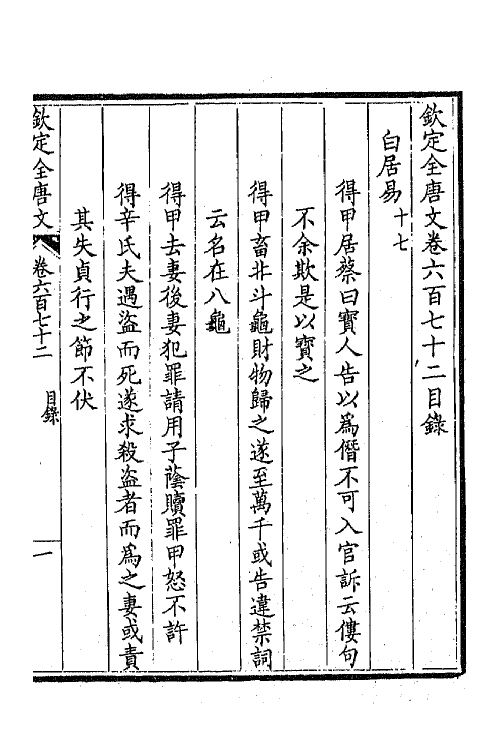 欽定全唐文卷六百七十二目錄
白居易十七
得甲居蔡曰寶人告以爲僭不可入官訴云僂句
不余欺是以寶之
得甲畜北斗龜財物歸之遂至萬千或告違禁詞
云名在八龜
得甲去妻後妻犯罪請用子蔭贖罪甲怒不許
得辛氏夫遇盜而死遂求殺盜者而爲之妻或責
其失貞行之節不伏
欽定全唐文 卷六百七十二 目錄 一